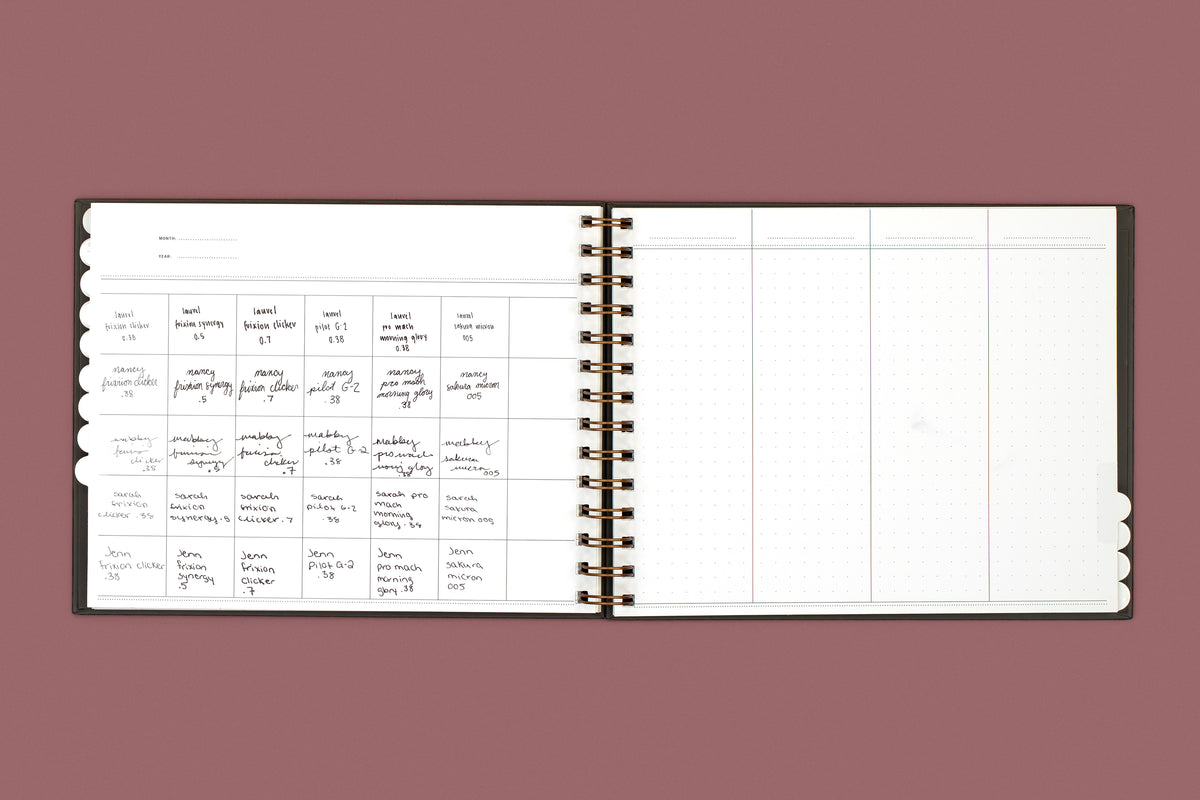 MONTH:
YEAR:
laurel
frixion clicker
0.38
laurel
frixion synergy
0.5
laurel
frixion clicker
0.7
laurel
pilot G-2
0.38
laurel
pro mach
morning glory
0.38
laurel
sakura micron
005
nancy
frixion clicker
.38
nancy
frixion synergy
.5
nancy
frixion clicker
.7
nancy
pilot G-2
.38
nancy
pro mach
morning glory
.38
nancy
sakura micron
005
mabby
clicker
.38
mabby
synergy
.5
mabby
clicker
.7
mabby
pilot G-2
.38
mabby
pro mach
glory
.38
mabby
sakura
micron 005
sarah
frixion
clicker .38
sarah
frixion
synergy .5
sarah
frixion
clicker .7
sarah
pilot G-2
.38
sarah pro
mach
morning
glory .38
sarah
sakura
micron 005
Jenn
frixion clicker
.38
Jenn
frixion
synergy
.5
Jenn
frixion
clicker
.7
Jenn
Pilot G-2
.38
Jenn
pro mach
morning
glory .38
Jenn
sakura
micron
005